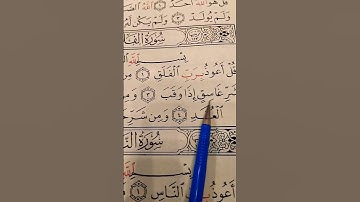 قُلْ هُوَ اللَّهُ أَحَدٌ ١ اللَّهُ
وَلَمْ يُولَدْ ٣ وَلَمْ يَكُن لَّهُ
سُورَةُ الفَلَق
بِسْمِ اللَّهِ
قُلْ أَعُوذُ بِرَبِّ الْفَلَقِ ١
شَرِّ غَاسِقٍ إِذَا وَقَبَ ٣ وَمِن
الْعُقَدِ ٤ وَمِن شَرِّ
سُورَةُ النَّا
بِسْمِ اللَّهِ
أَعُوذُ بِرَبِّ النَّاسِ ١